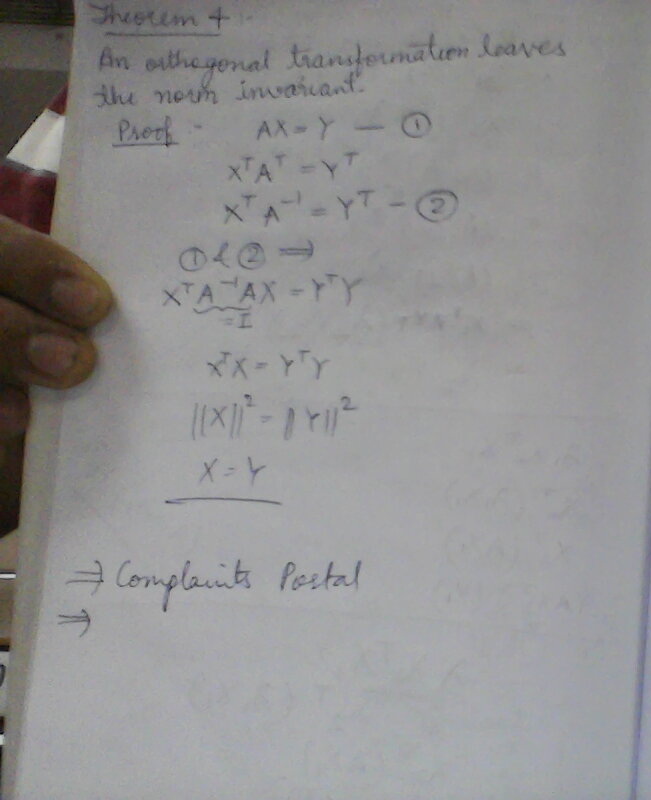 Theorem 4 :-
An orthogonal transformation leaves
the norm invariant.
Proof :- AX = Y — ①
XᵀAᵀ = Yᵀ
XᵀA⁻¹ = Yᵀ — ②
① & ② ⇒
XᵀA⁻¹AX = YᵀY
= I
XᵀX = YᵀY
||X||² = ||Y||²
X = Y
⇒ Complaints Portal
⇒